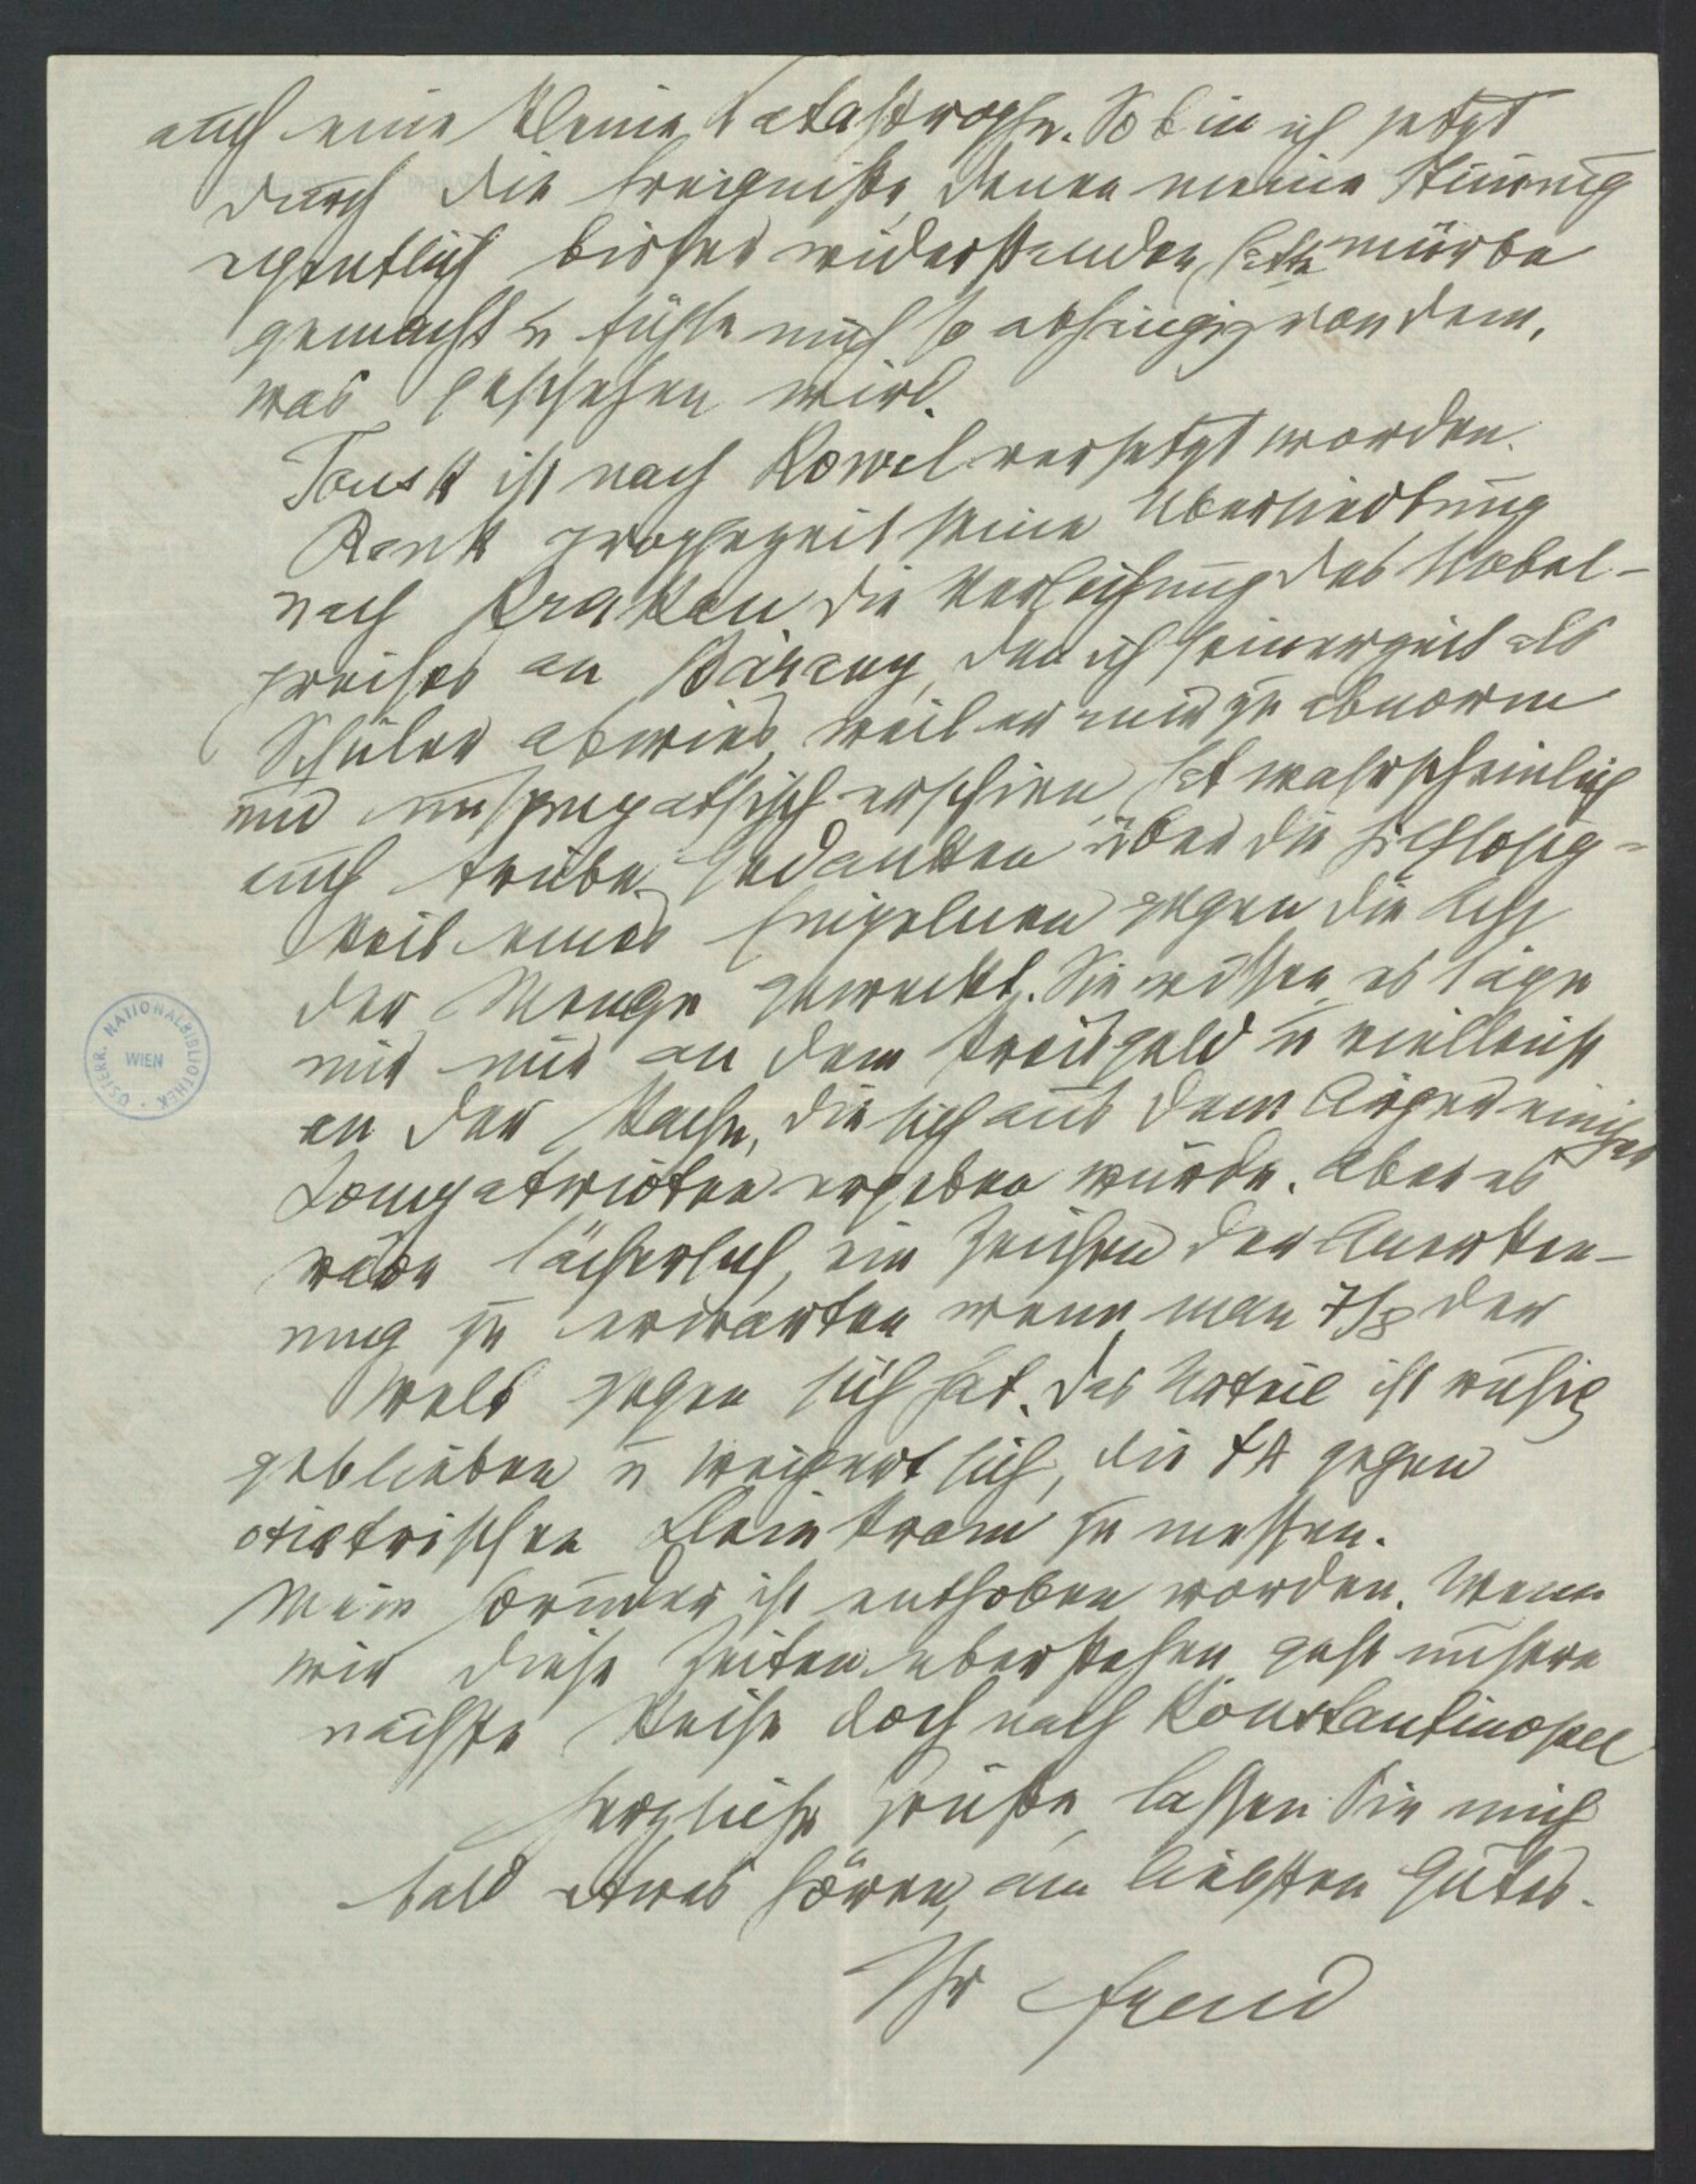 auch eine kleine Katastrophe. So bin ich jetzt
durch die Ereigniße, denen meine Stimmung
eigentlich bisher widerstanden hatte mürbe
gemacht u fühle mich so abhängig von dem,
was geschehen wird.
Tausk ist nach Kowel versetzt worden.
Rank prophezeit seine Übersiedlung
nach Krakau. Die Verleihung des Nobel-
preises an Bárány, den ich seinerzeit als
Schüler abwies, weil er mir zu abnorm
und unsympathisch erschien, hat wahrscheinlich
auch trübe Gedanken über die Hilflosig-
keit eines Einzelnen gegen die
der Menge geweckt. Sie wissen, es läge
mir nur an dem Preisgeld u vielleicht
an der Rache, die sich aus dem Ärger einiger
Kompatrioten ergeben würde. Aber es
wäre lächerlich, ein Zeichen der Anerken-
nung zu erwarten wenn man 7/8 der
Welt gegen sich hat. Das Urteil ist ruhig
geblieben u weigert sich, die ΨΑ gegen
otiatrischen Kleinkram zu messen.
Mein Bruder ist enthoben worden. Wenn
wir diese Zeiten überstehen, geht unsere
nächste Reise doch nach Konstantinopel
Herzliche Grüße, lassen Sie mich
bald etwas hören, am liebsten Gutes.
Ihr Freud
ÖSTERR. NATIONALBIBLIOTHEK
WIEN